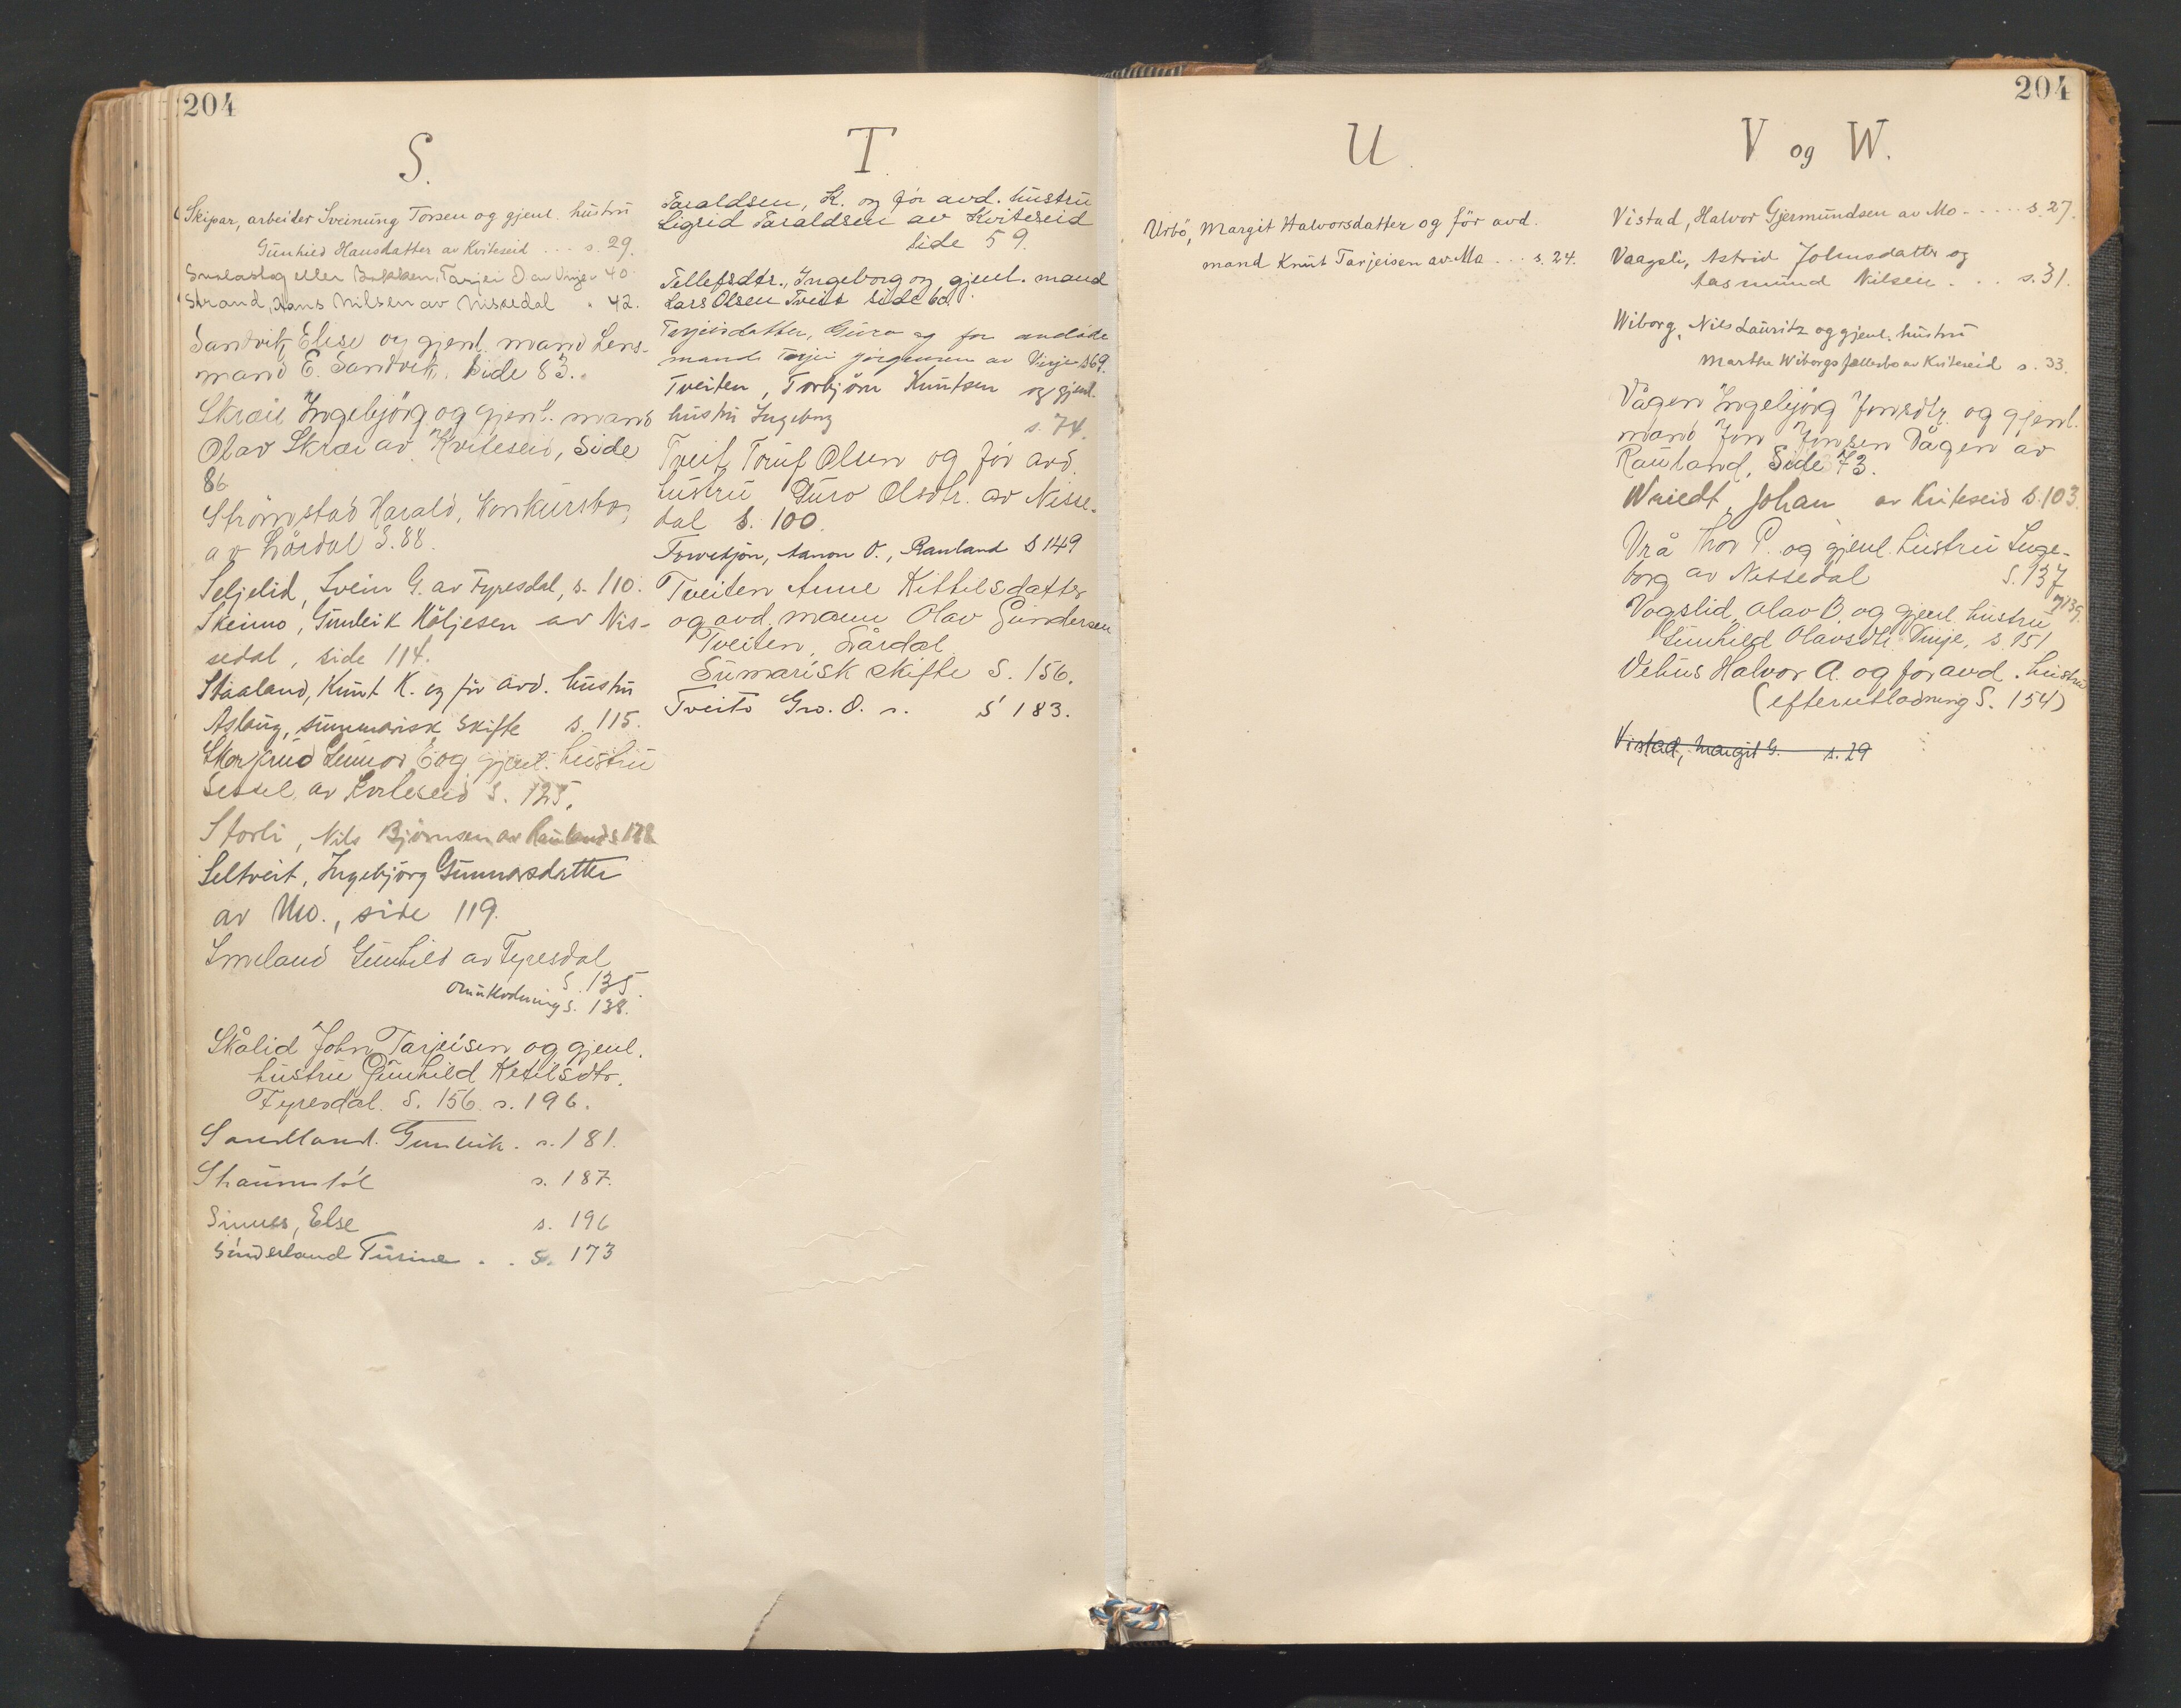 204
S.
Skipar, arbeider Sveinung Torsen og gjenl. hustru
Gunhild Hansdatter av Kviteseid . . . s. 29.
eller Bakken, Tarjei O. av Vinje " 40.
Strand, Hans Nilsen av Nissedal " 42.
Sandvik, Elise og gjenl. mand Lens-
mand E. Sandvik, Side 83.
Skræi Ingebjörg og gjenl. mand
Olav Skræi av Kviteseid, Side
86
Strömstad Harald, Konkursbo,
av Lårdal S. 88.
Seljelid, Svein G. av Fyresdal, s. 110.
Skeimo, Gunleik Köljesen av Nis-
sedal, side 114.
Staaland, Knut K. og för avd. hustru
Aslaug, summarisk skifte s. 115.
Gunnar E og gjenl. hustru
Sessel av Kviteseid S. 125.
Storli, Nils Björnsen av Rauland s
Seltveit, Ingebjörg Gunnarsdatter
av Mo., side 119.
Gunhild av Fyresdal
S. 135.
S. 138.
Skålid John Tarjeisen og gjenl.
hustru Gunhild Ketilsdtr.
Fyresdal. S. 156. s. 196.
Sandland. Gunleik. s. 181.
s. 187.
Else s. 196
Sunderland Tusine . . S. 173
T
Taraldsen, K. og för avd. hustru
Sigrid Taraldsen av Kviteseid
Side 59.
Tellefsdtr., Ingeborg og gjenl. mand
Lars Olsen Tveit side 60.
Terjeisdatter, Guro og for avdöde
mand Torjei Jörgensen av Vinje s 69.
Tveiten, Torbjörn Knutsen og gjenl.
hustru Ingeborg s. 74.
Tveit, Toruf Olsen og for avd.
hustru Guro Olsdtr. av Nisse-
dal S. 100.
Aanon O., Rauland S 149
Tveiten Anne Kittilsdatter
og avd. mann Olav Gundersen
Tveiten, Lårdal
Sumarisk skifte S. 156.
Tveito Gro. O. s. S 183.
204
U.
Urbö, Margit Halvorsdatter og för avd.
mand Knut Tarjeisen av Mo . . . s. 24.
V og W.
Vistad, Halvor Gjermundsen av Mo . . . . . s. 27.
Vaagsli, Astrid Johnsdatter og
Aasmund Nilsen . . . s. 31.
Wiborg, Nils Lauritz og gjenl. hustru
Marthe Wiborg av Kviteseid s. 33.
Vågen Ingebjörg Jonsdtr. og gjenl.
mand Jon Jonsen Vågen av
Rauland, Side 73.
Wriedt, Johan av Kviteseid S. 103.
Vrå Thor P. og gjenl. hustru Inge-
borg av Nissedal S. 137
og 139.
Vågslid, Olav O. og gjenl. hustru
Gunhild Olavsdtr. Vinje, s 151
Vehus Halvor A. og for avd. hustru
(efterutlodning S. 154)
Vistad, Margit G. s. 29